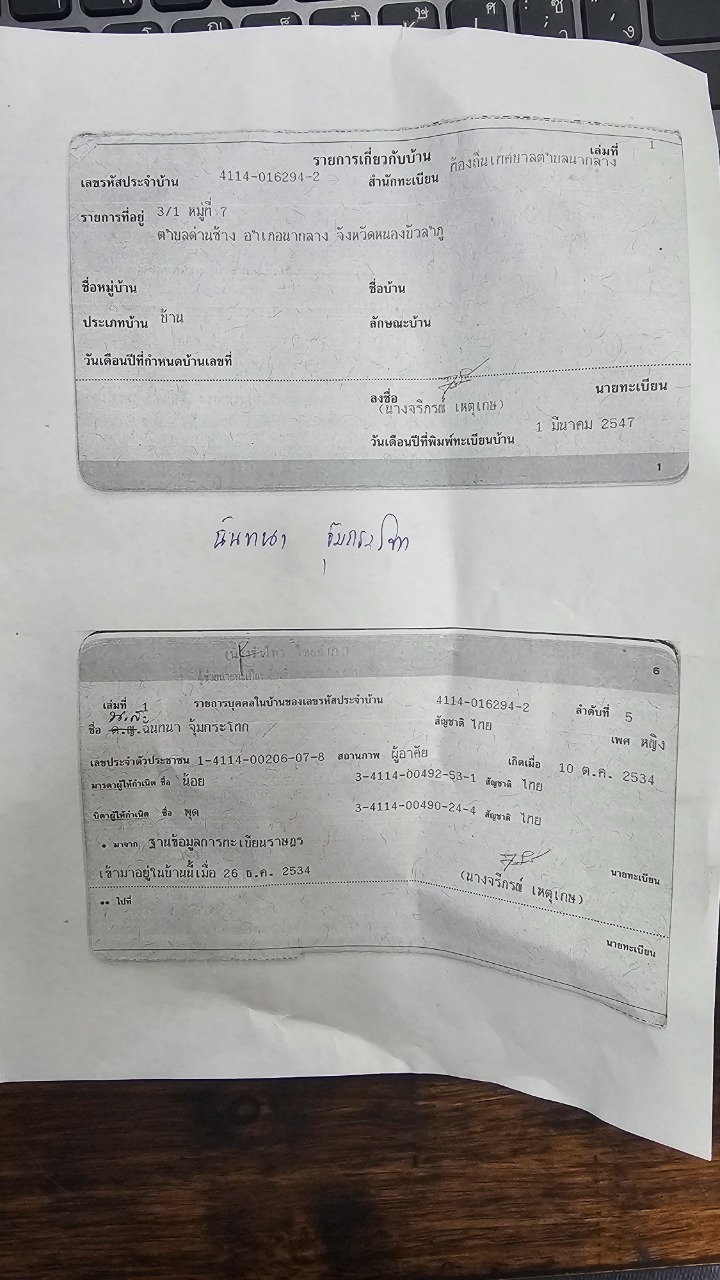 เล่มที่ 1
รายการเกี่ยวกับบ้าน
เลขรหัสประจำบ้าน 4114-016294-2 สำนักทะเบียน ท้องถิ่นเทศบาลตำบลนากลาง
รายการที่อยู่ 3/1 หมู่ที่ 7
ตำบลด่านช้าง อำเภอนากลาง จังหวัดหนองบัวลำภู
ชื่อหมู่บ้าน ชื่อบ้าน
ประเภทบ้าน บ้าน ลักษณะบ้าน
วันเดือนปีที่กำหนดบ้านเลขที่
ลงชื่อ นายทะเบียน
(นางจรีภรณ์ เหตุเกษ)
วันเดือนปีที่พิมพ์ทะเบียนบ้าน 1 มีนาคม 2547
1
ฉันทนา จุ้มกระโทก
6
เล่มที่ 1 รายการบุคคลในบ้านของเลขรหัสประจำบ้าน 4114-016294-2 ลำดับที่ 5
ชื่อ ด.ญ.ฉันทนา จุ้มกระโทก สัญชาติ ไทย เพศ หญิง
เลขประจำตัวประชาชน 1-4114-00206-07-8 สถานภาพ ผู้อาศัย เกิดเมื่อ 10 ต.ค. 2534
มารดาผู้ให้กำเนิด ชื่อ น้อย 3-4114-00492-53-1 สัญชาติ ไทย
บิดาผู้ให้กำเนิด ชื่อ พุด 3-4114-00490-24-4 สัญชาติ ไทย
* มาจาก ฐานข้อมูลการทะเบียนราษฎร
เข้ามาอยู่ในบ้านนี้เมื่อ 26 ธ.ค. 2534
นายทะเบียน
(นางจรีภรณ์ เหตุเกษ)
** ไปที่
นายทะเบียน